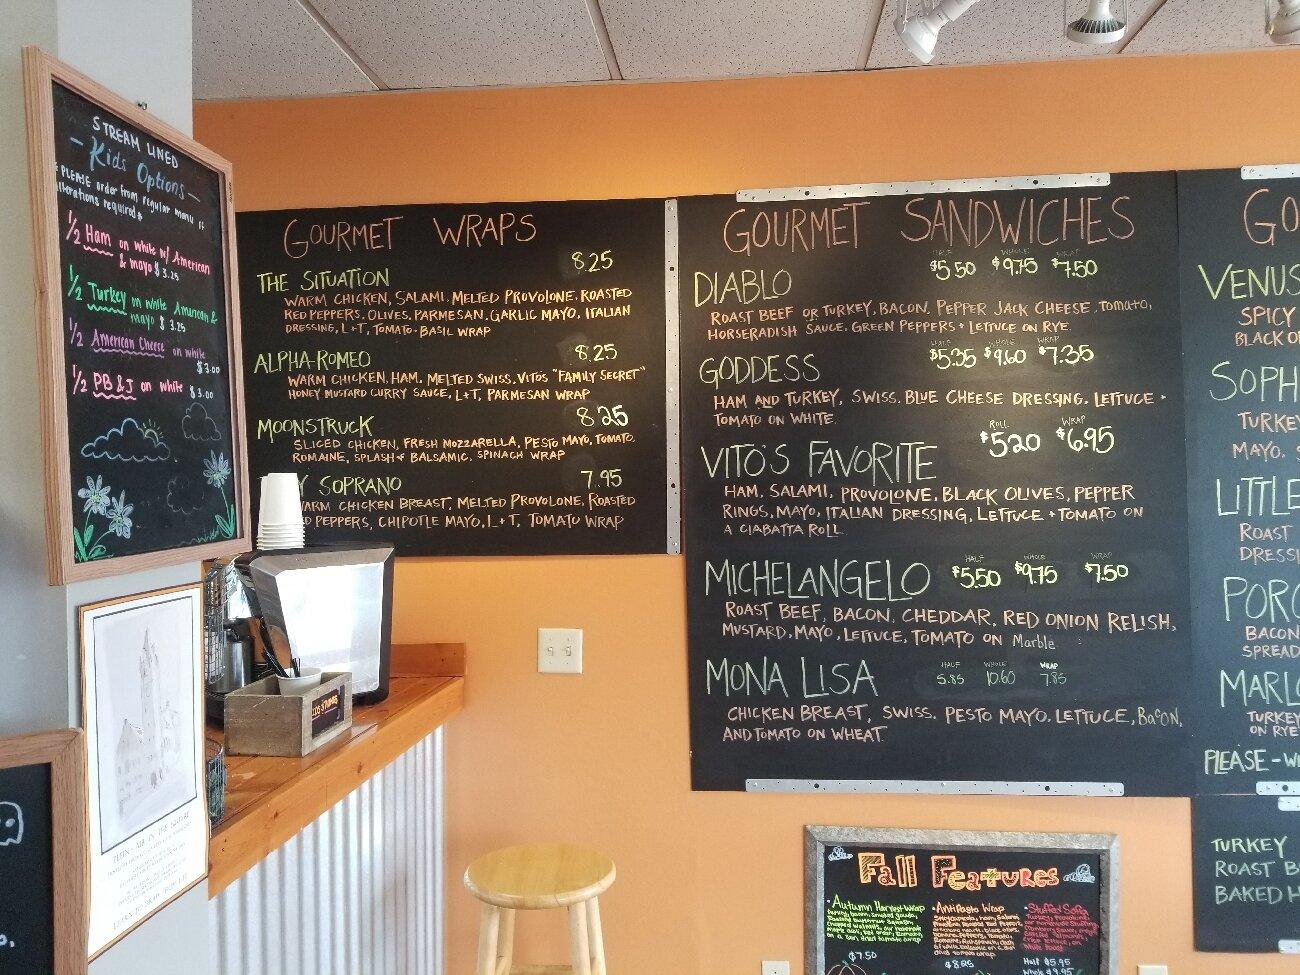 STREAM LINED
- Kids Options -
PLEASE order from regular menu if
alterations required*
1/2 Ham on white w/ American
& mayo $3.25
1/2 Turkey on white American &
mayo $3.25
1/2 American Cheese on white
$3.00
1/2 PB & J on white $3.00
GOURMET WRAPS
THE SITUATION 8.25
WARM CHICKEN, SALAMI, MELTED PROVOLONE, ROASTED
RED PEPPERS, OLIVES, PARMESAN, GARLIC MAYO, ITALIAN
DRESSING, L+T, TOMATO-BASIL WRAP
ALPHA-ROMEO 8.25
WARM CHICKEN, HAM, MELTED SWISS, VITO'S "FAMILY SECRET"
HONEY MUSTARD CURRY SAUCE, L+T, PARMESAN WRAP
MOONSTRUCK 8.25
SLICED CHICKEN, FRESH MOZZARELLA, PESTO MAYO, TOMATO,
ROMAINE, SPLASH of BALSAMIC, SPINACH WRAP
Y SOPRANO 7.95
WARM CHICKEN BREAST, MELTED PROVOLONE, ROASTED
D PEPPERS, CHIPOTLE MAYO, L+T, TOMATO WRAP
GOURMET SANDWICHES
HALF WHOLE WRAP
DIABLO $5.50 $9.75 $7.50
ROAST BEEF OR TURKEY, BACON, PEPPER JACK CHEESE, Tomato,
HORSERADISH SAUCE, GREEN PEPPERS + LETTUCE ON RYE.
HALF WHOLE WRAP
GODDESS $5.35 $9.60 $7.35
HAM AND TURKEY, SWISS, BLUE CHEESE DRESSING, LETTUCE +
TOMATO ON WHITE.
ROLL WRAP
VITO'S FAVORITE $5.20 $6.95
HAM, SALAMI, PROVOLONE, BLACK OLIVES, PEPPER
RINGS, MAYO, ITALIAN DRESSING, LETTUCE + TOMATO ON
A CIABATTA ROLL.
HALF WHOLE WRAP
MICHELANGELO $5.50 $9.75 $7.50
ROAST BEEF, BACON, CHEDDAR, RED ONION RELISH,
MUSTARD, MAYO, LETTUCE, TOMATO ON Marble
HALF WHOLE WRAP
MONA LISA 5.85 10.60 7.85
CHICKEN BREAST, SWISS, PESTO MAYO, LETTUCE, BACON,
AND TOMATO ON WHEAT.
GO
VENUS
SPICY
BLACK O
SOPH
TURKEY
MAYO, S
LITTLE
ROAST
DRESSI
PORC
BACON
SPREAD
MARL
TURKEY
ON RYE
PLEASE - W
TURKEY
ROAST B
BAKED H
Fall Features
• Autumn Harvest Wrap
$7.50
• AntiPasto Wrap
$8.25
• Stuffed Sofia
Half $5.95
Whole $9.95